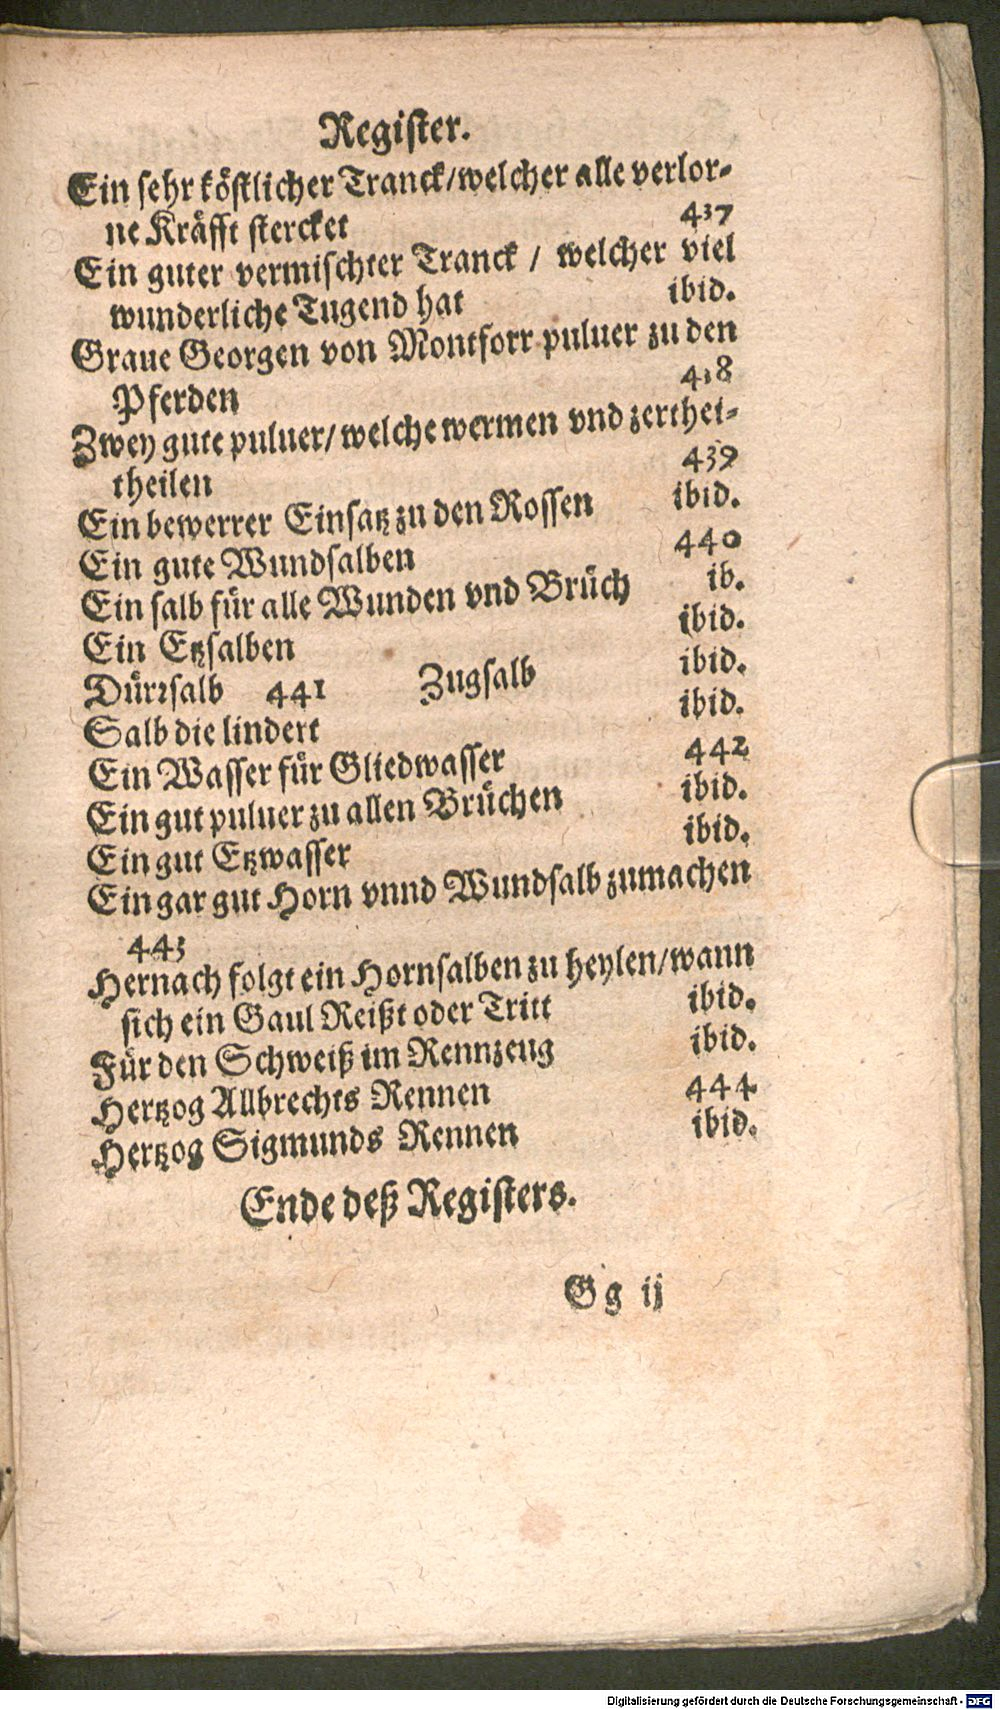 Register.
Ein sehr köstlicher Tranck/welcher alle verlor-
ne Kräfft stercket 437
Ein guter vermischter Tranck / welcher viel
wunderliche Tugend hat ibid.
Graue Georgen von Montforr puluer zu den
Pferden 438
Zwey gute puluer/welche wermen vnd zerthei-
theilen 439
Ein bewerrer Einsatz zu den Rossen ibid.
Ein gute Wundsalben 440
Ein salb für alle Wunden vnd Brüch ib.
Ein Etzsalben ibid.
Dürrsalb 441 Zugsalb ibid.
Salb die lindert ibid.
Ein Wasser für Gliedwasser 442
Ein gut puluer zu allen Brüchen ibid.
Ein gut Etzwasser ibid.
Ein gar gut Horn vnnd Wundsalb zumachen
443
Hernach folgt ein Hornsalben zu heylen/wann
sich ein Gaul Reißt oder Tritt ibid.
Für den Schweiß im Rennzeug ibid.
Hertzog Allbrechts Rennen 444
Hertzog Sigmunds Rennen ibid.
Ende deß Registers.
Gg ij
Digitalisierung gefördert durch die Deutsche Forschungsgemeinschaft - DFG